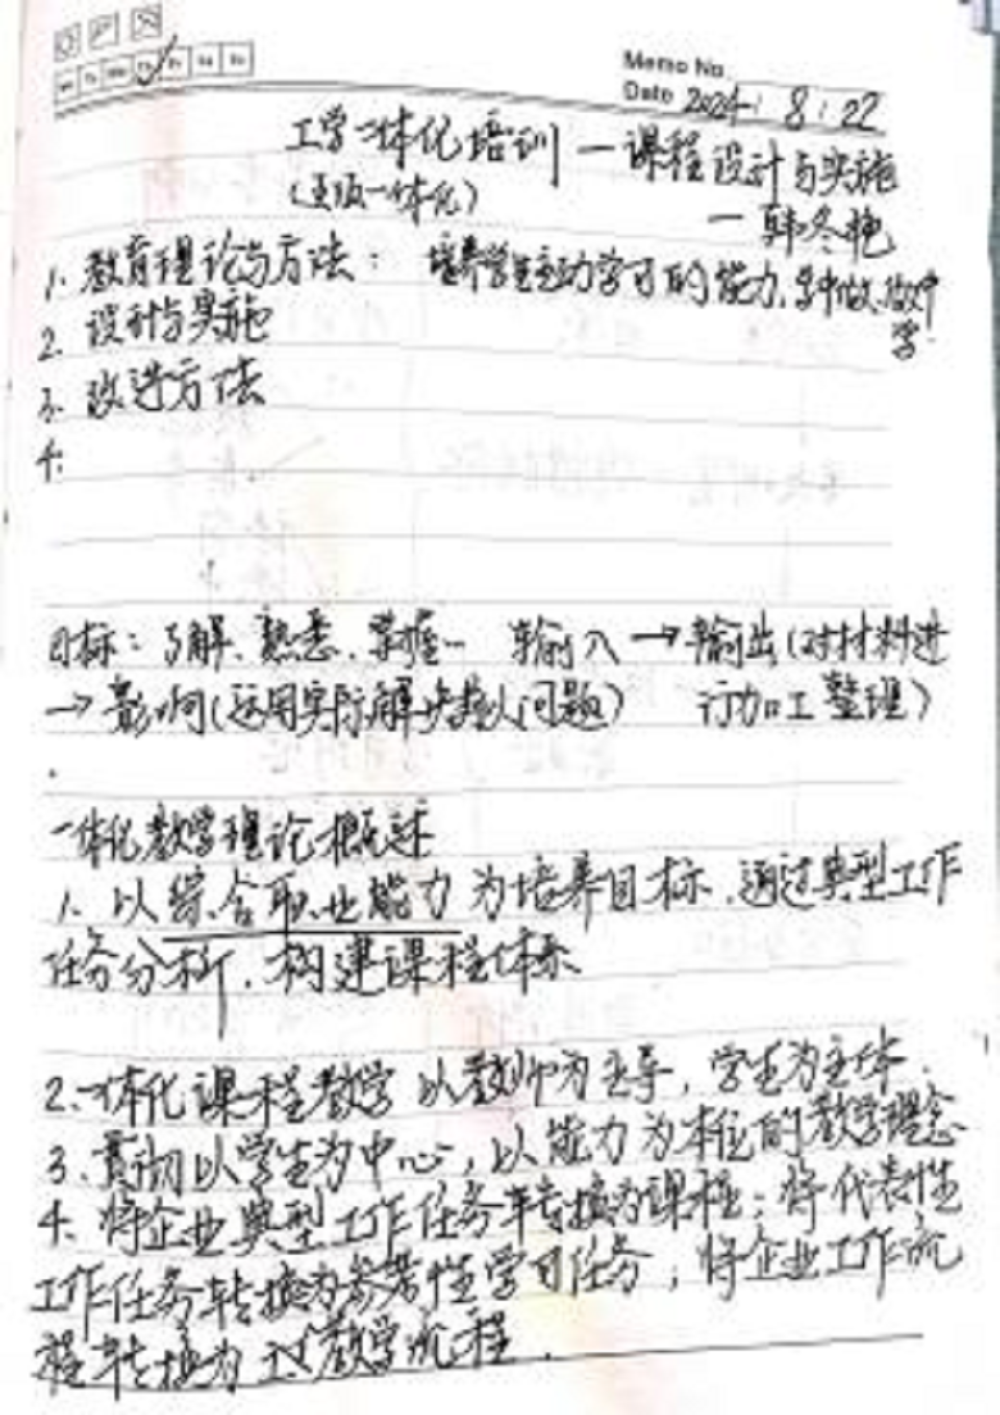 Mo Tu We Th Fr Sa Su
Memo No.
Date 2024 . 8 . 22
工学一体化培训 — 课程设计与实施
一体化)
— 韩冬艳
1. 教育理论与方法： 培养学生主动学习的能力,学中做、做中
学.
2. 设计与实施
3. 改进方法
4.
目标：了解、熟悉、掌握… 输入 → 输出(对材料进
→ 影响(运用实际解决 问题) 行加工整理)
一体化教学理论概述
1. 以综合职业能力为培养目标,通过典型工作
任务分析,构建课程体系
2.一体化课程教学以教师为主导,学生为主体.
3.贯彻以学生为中心,以能力为本位的教学理念
4. 将企业典型工作任务转换为课程；将代表性
工作任务转换为参考性学习任务；将企业工作流
程转换为 教学流程.